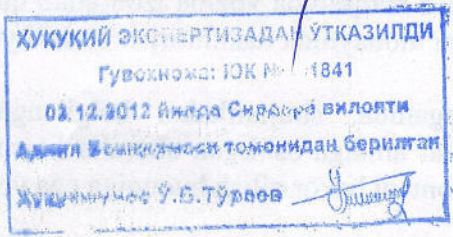 ҲУҚУҚИЙ ЭКСПЕРТИЗАДАН ЎТКАЗИЛДИ
Гувоҳнома: ЮК № 1841
03.12.2012 йилда Сирдарё вилояти
Адлия Бошқармаси томонидан берилган
Ҳуқуқшунос Ў.Б.Тўраов